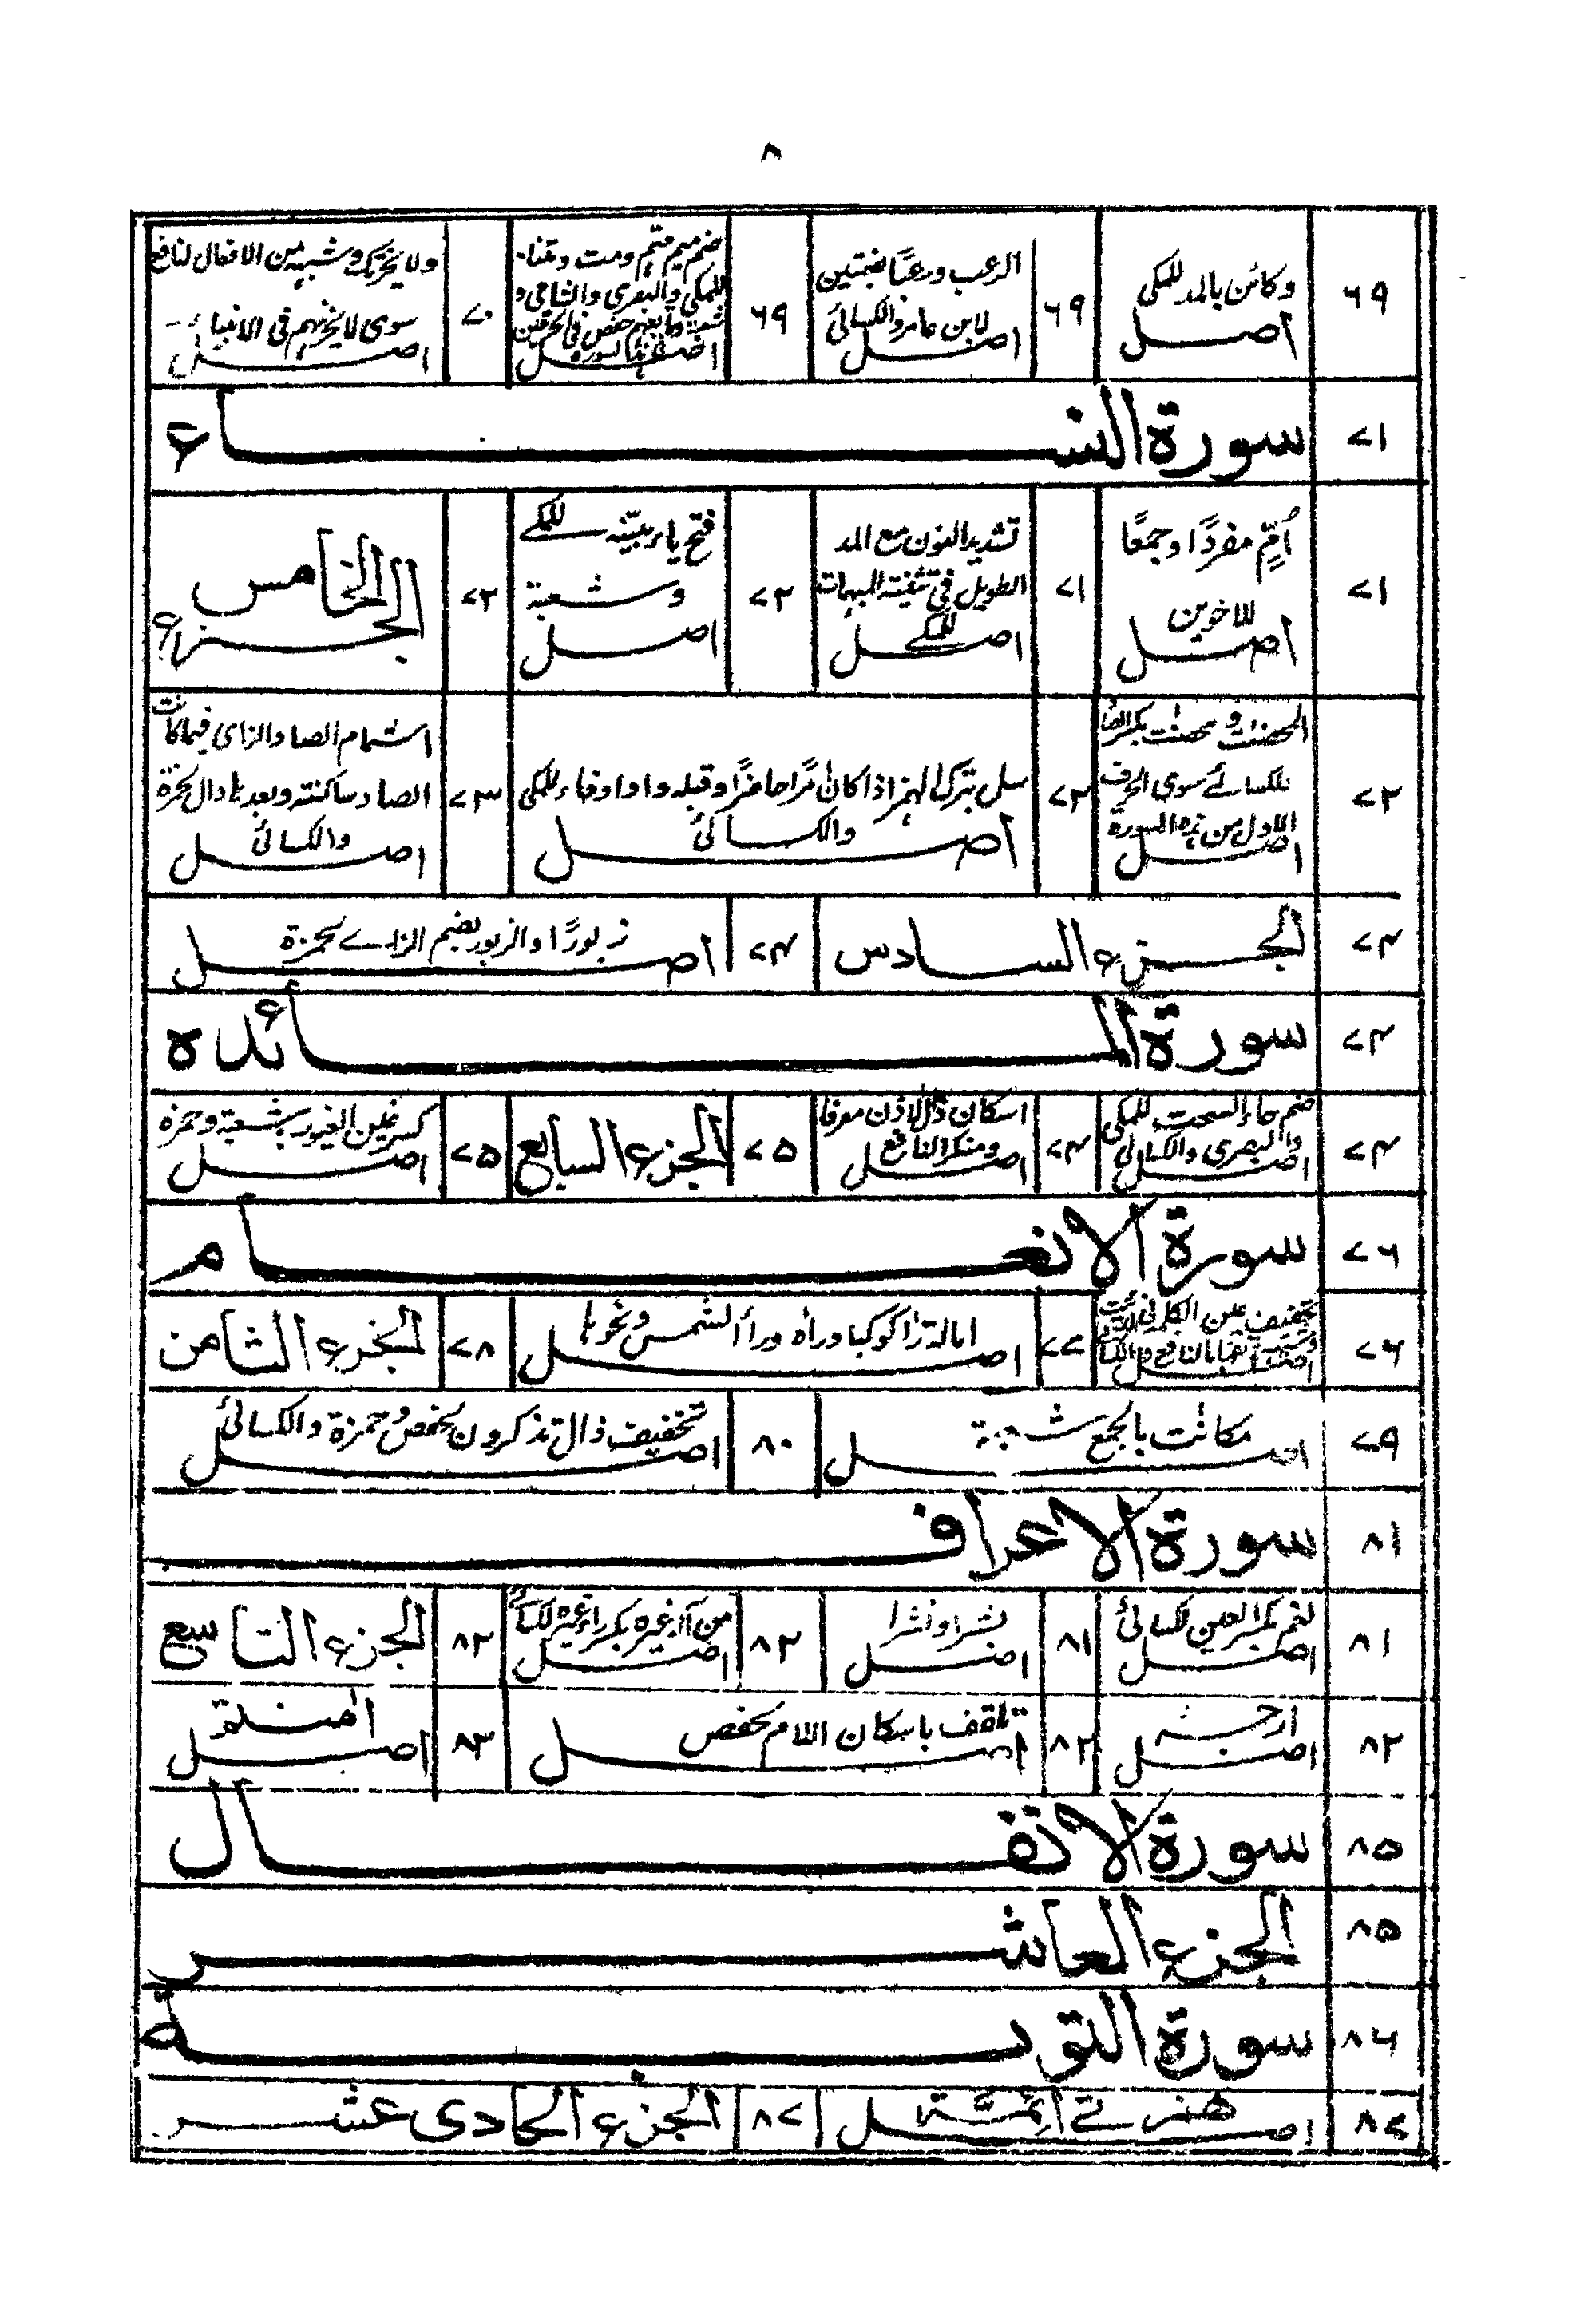 ۸
۶۹
وكائن بالمد للمكى
اصل
۶۹
الرعب ورعبًا بضمتين
لابن عامر والكسائى
اصل
۶۹
ضم ميم متم ومت ومتنا
للمكى والبصرى والشامى و
شعبة
اصل
۷۰
ولا يحزنك وشبهه من الافعال لنافع
سوى لا يحزنهم فى الانبياء
اصل
۷۱
سورة النساء
۷۱
اُمِّ مفردًا وجمعًا
للاخوين
اصل
۷۱
تشديد النون مع المد
الطويل فى تثنية المبهمات
للمكے
اصل
۷۲
فتح ياء مبيّنة للمكے
وشعبة
اصل
۷۲
الجزء الخامس
۷۲
المحصنٰت و محصنٰت بكسر الصاد
للكسائے سوى الحرف
الاول من هذه السورة
اصل
۷۲
سل بترك الهمز اذا كان امرًا حاضرًا وقبله واو او فاء للمكى
والكسائى
اصل
۷۳
اشمام الصاد الزاى فيما كانت
الصاد ساكنة وبعدها دال لحمزة
والكسائى
اصل
۷۴
الجزء السادس
۷۴
زبورًا والزبور بضم الزاے لحمزة
اصل
۷۴
سورة المائده
۷۴
ضم حاء السحت للمكى
والبصرى والكسائى
اصل
۷۴
اسكان ذال الاذن معرفا
ومنكرا لنافع
اصل
۷۵
الجزء السابع
۷۵
كسر غين الغيوب لشعبة وحمزه
اصل
۷۶
سورة الانعام
۷۶
تخفيف عين الكلم فى ارئيت
لنافع والكسائى
اصل
۷۷
امالة رأ كوكبا وراٰه ورأ الشمس ونحوها
اصل
۷۸
الجزء الثامن
۷۹
مكانٰت بالجمع شعبة
اصل
۸۰
تخفيف ذال تذكرون لحفص وحمزة والكسائى
اصل
۸۱
سورة الاعراف
۸۱
نعم بكسر العين للكسائى
اصل
۸۱
نشرا ونشرا
اصل
۸۲
من اله غيره بكسر راء غيره للكسائے
اصل
۸۲
الجزء التاسع
۸۲
ارجه
اصل
۸۲
تلقف باسكان اللام لحفص
اصل
۸۳
اٰمنتم
اصل
۸۵
سورة الانفال
۸۵
الجزء العاشر
۸۶
سورة التوبة
۸۷
همزتے ائمة
اصل
۸۷
الجزء الحادى عشر